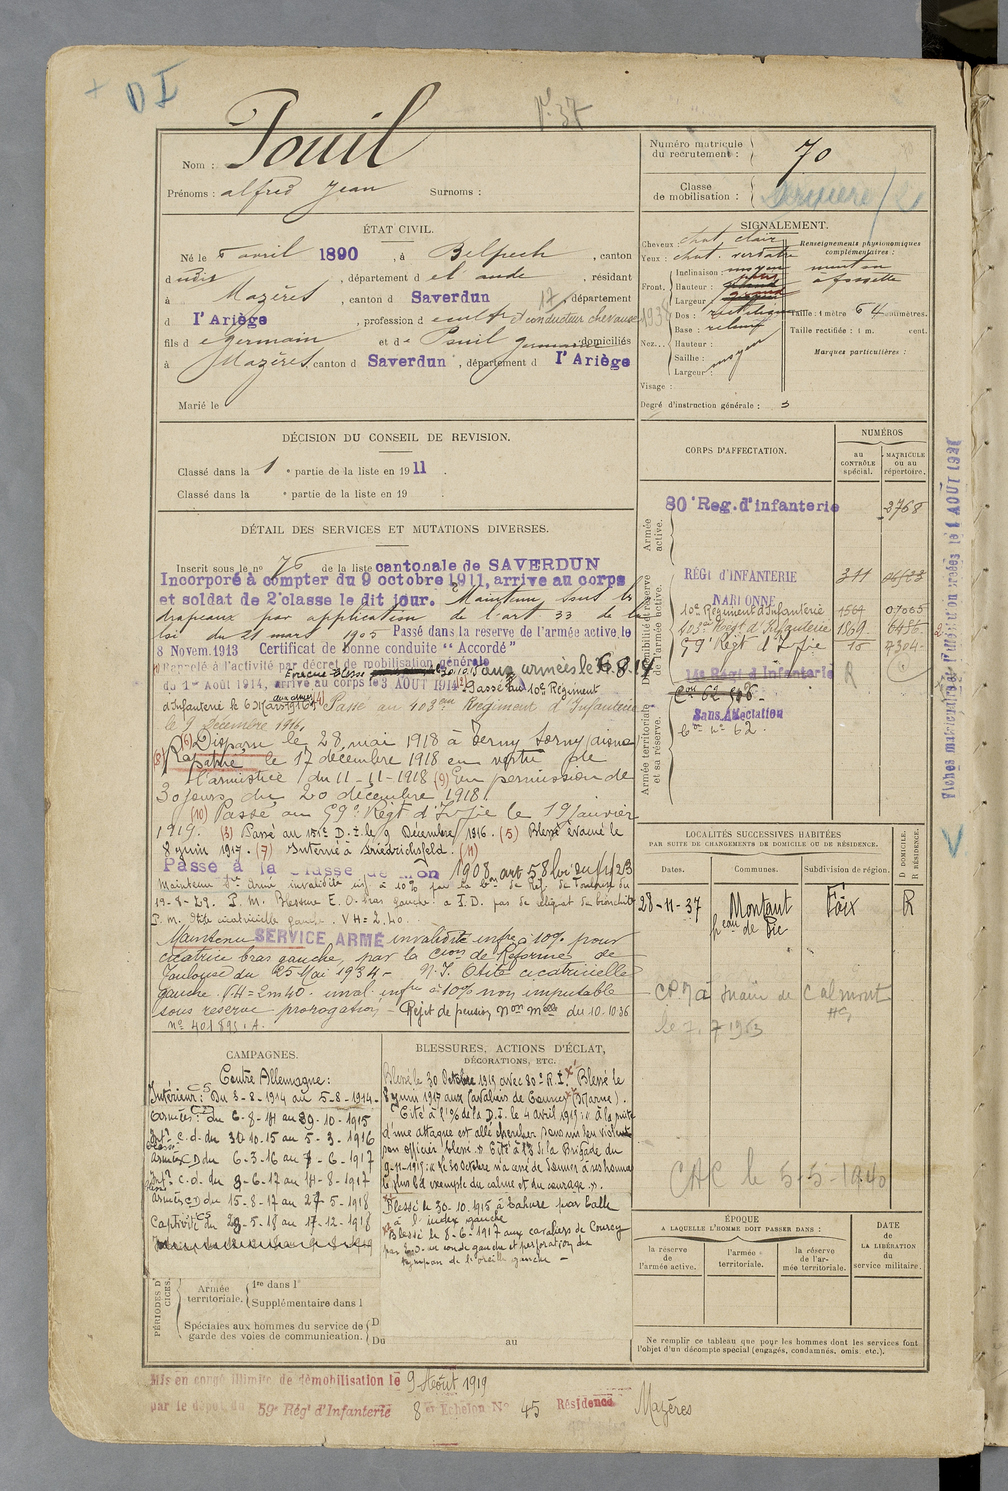 D I
P. 37
Nom : Pouil
Prénoms : alfred Jean Surnoms :
Numéro matricule du recrutement : 70
Classe de mobilisation :
ÉTAT CIVIL.
Né le 5 avril 1890, à Belpech, canton
dudit, département de l'aude, résidant
à Mazères, canton d Saverdun, département
d l'Ariège, profession de cult. et conducteur chevaux
fils de germain et de Pouil germaine domiciliés
à Mazères, canton d Saverdun, département d l'Ariège
Marié le
SIGNALEMENT.
Cheveux chat. clair
Yeux : chat. verdatre
Front. Inclinaison : moyen
Hauteur :
Largeur :
Nez. Dos : rectiligne
Base : relevé
Hauteur :
Saillie : moyen
Largeur :
Visage :
Degré d'instruction générale : 3
Renseignements physionomiques complémentaires :
menton
à fossette
Taille : 1 mètre 64 centimètres.
Taille rectifiée : 1 m. cent.
Marques particulières :
DÉCISION DU CONSEIL DE REVISION.
Classé dans la 1e partie de la liste en 1911.
Classé dans la e partie de la liste en 19
DÉTAIL DES SERVICES ET MUTATIONS DIVERSES.
Inscrit sous le n° 76 de la liste cantonale de SAVERDUN
Incorporé à compter du 9 octobre 1911, arrive au corps
et soldat de 2e classe le dit jour. Maintenu sous les
drapeaux par application de l'art 33 de la
loi du 21 mars 1905 Passé dans la reserve de l'armée active, le
8 Novem. 1913 Certificat de bonne conduite "Accordé"
Rappelé à l'activité par décret de mobilisation générale
du 1er Août 1914, arrivé au corps le 3 AOUT 1914 aux armées le 6.8.14
Evacué blessé
Passé au 10e Régiment
d'Infanterie le 6 Mars 1916 (4) Passé au 403me Régiment d'Infanterie
le 9 Décembre 1916.
(6) Disparu le 28 mai 1918 à Serny Sorny (aisne)
(8) Rapatrié le 17 décembre 1918 en vertu de
l'armistice du 11-11-1918 (9) En permission de
30 jours du 20 décembre 1918.
(10) Passé au 59e Régt d'Infie le 19 Janvier
1919. (3) Passé au 131e D.I. le 9 Décembre 1916. (5) Blessé évacué le
8 juin 1917. (7) Interné à Friedrichsfeld. (11)
Passé à la Classe de mon 1908, art 58 loi du 1/4/23
Maintenu Sce Armé invalidité inf. à 10% par la Con de Réf. de Toulouse du
19-8-29. P.M. Blessure E.O. bras gauche : à I.D. pas de reliquat de bronchite
P.m. Otite cicatricielle gauche. VH = 2.40.
Maintenu SERVICE ARMÉ invalidité infre à 10% pour
cicatrice bras gauche, par la Cion de Réforme de
Toulouse du 25 Mai 1934 - N.I. Otite cicatricielle
gauche VH = 2m40. inval. infre à 10% non imputable
sous réserve prorogation - Rejet de pension Non Mble du 10.10 36
n° 401895. A.
CORPS D'AFFECTATION.
NUMÉROS
au CONTRÔLE spécial.
MATRICULE ou au répertoire.
Armée active.
80e Reg. d'infanterie 2768
Disponibilité et réserve de l'armée active.
RÉGt d'INFANTERIE 311
NARBONNE
10e Régiment d'Infanterie 1564 07065
403me Régt d'Infanterie 1869 6486
59e Régt d'Infie 15 4304
14e Régt d'Infanterie R
Armée territoriale et sa réserve.
Sans Affectation
Con n° 62.
Fiches matricules de l' créées le 1 AOUT 1921
LOCALITÉS SUCCESSIVES HABITÉES
PAR SUITE DE CHANGEMENTS DE DOMICILE OU DE RÉSIDENCE.
Dates. Communes. Subdivision de région. D DOMICILE. R RÉSIDENCE.
28-11-37 Montaut Foix R
CMA Mairie de Calmont
HG
le 7.7 1953
CAC le 5-5-1940
CAMPAGNES.
Contre Allemagne :
Intérieur : CS Du 3-8-1914 au 5-8-1914
Armées : CD du 6-8-14 au 29-10-1915
Intr c.d. du 30 10-15 au 5-3-1916
Armées CD du 6-3-16 au 7-6-1917
Intr c.d. du 8-6-17 au 14-8-1917
Armées CD du 15-8-17 au 27 5-1918
Captivité CS du 28-5-18 au 17-12-1918
BLESSURES, ACTIONS D'ÉCLAT,
DÉCORATIONS, ETC.
Blessé le 30 Octobre 1915 avec 80e R.I. Blessé le
8 juin 1917 aux Cavaliers de Courcy (Marne).
Cité à l'
D.I. le 4 avril 1915 : « à la suite
d'une attaque est allé chercher sous un feu violent
son officier blessé ». Cité à de la Brigade du
9-11-1915 : « le 30 Octobre n'a cessé de donner à ses hommes
le plus bel exemple du calme et du courage ».
Blessé le 30-10-1915 à Tahure par balle
à l'index gauche
Blessé le 8-6-1917 aux cavaliers de Courcy
par E.O. au coude gauche et perforation du
tympan de l'oreille gauche -
PÉRIODES D'EXERCICES.
Armée territoriale. 1re dans l'
Supplémentaire dans l
Spéciales aux hommes du service de garde des voies de communication. D
Du au
ÉPOQUE
A LAQUELLE L'HOMME DOIT PASSER DANS :
la réserve de l'armée active.
l'armée territoriale.
la réserve de l'armée territoriale.
DATE de LA LIBÉRATION du service militaire.
Ne remplir ce tableau que pour les hommes dont les services font
l'objet d'un décompte spécial (engagés, condamnés, omis, etc.).
Mis en congé illimité de démobilisation le 9 Août 1919
par le dépôt du 59e Régt d'Infanterie 8e Echelon N° 45 Résidence Mazères